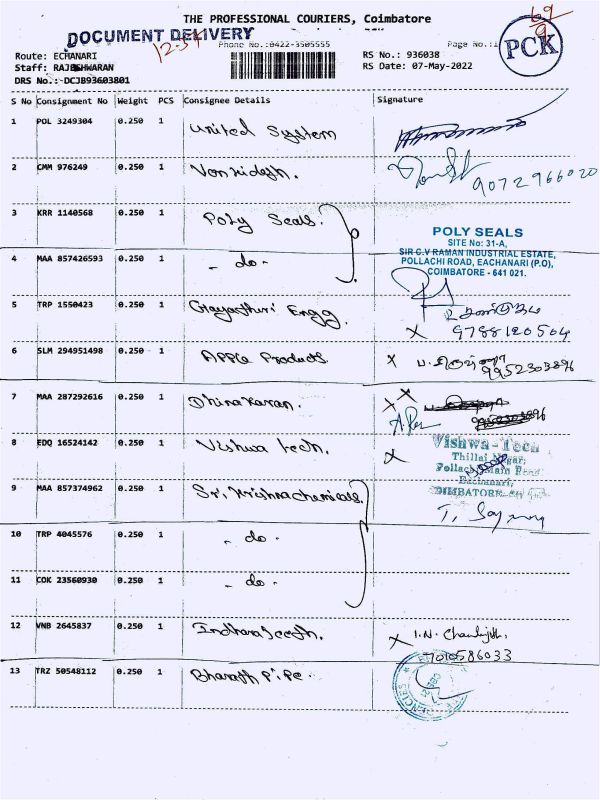 THE PROFESSIONAL COURIERS, Coimbatore
DOCUMENT DELIVERY
Phone No.:0422-3505555
Page No.:1
69
PCK
Route: ECHANARI
RS No.: 936038
Staff: RAJESHWARAN
RS Date: 07-May-2022
DRS No.:-DCJB93603801
S No Consignment No Weight PCS Consignee Details Signature
1 POL 3249304 0.250 1 United System
2 CMM 976249 0.250 1 9072966020
3 KRR 1140568 0.250 1 Poly Seals.
POLY SEALS
SITE No: 31-A,
SIR C.V RAMAN INDUSTRIAL ESTATE,
POLLACHI ROAD, EACHANARI (P.O),
COIMBATORE - 641 021.
4 MAA 857426593 0.250 1 - do -
5 TRP 1550423 0.250 1 Engg. X 9788120504
6 SLM 294951498 0.250 1 Apple Products X 9952303896
7 MAA 287292616 0.250 1 Dhinakaran. X X
8 EDQ 16524142 0.250 1 Vishwa tech. X
Vishwa-Tech
Thillai Nagar,
Pollachi Main Road
Eachanari,
9 MAA 857374962 0.250 1 Sri Krishna chemicals.
10 TRP 4045576 0.250 1 - do -
11 COK 23560930 0.250 1 - do -
12 VNB 2645837 0.250 1 Indhrajeeth. X I.N.
7010586033
13 TRZ 50548112 0.250 1 Bharath Pipe.